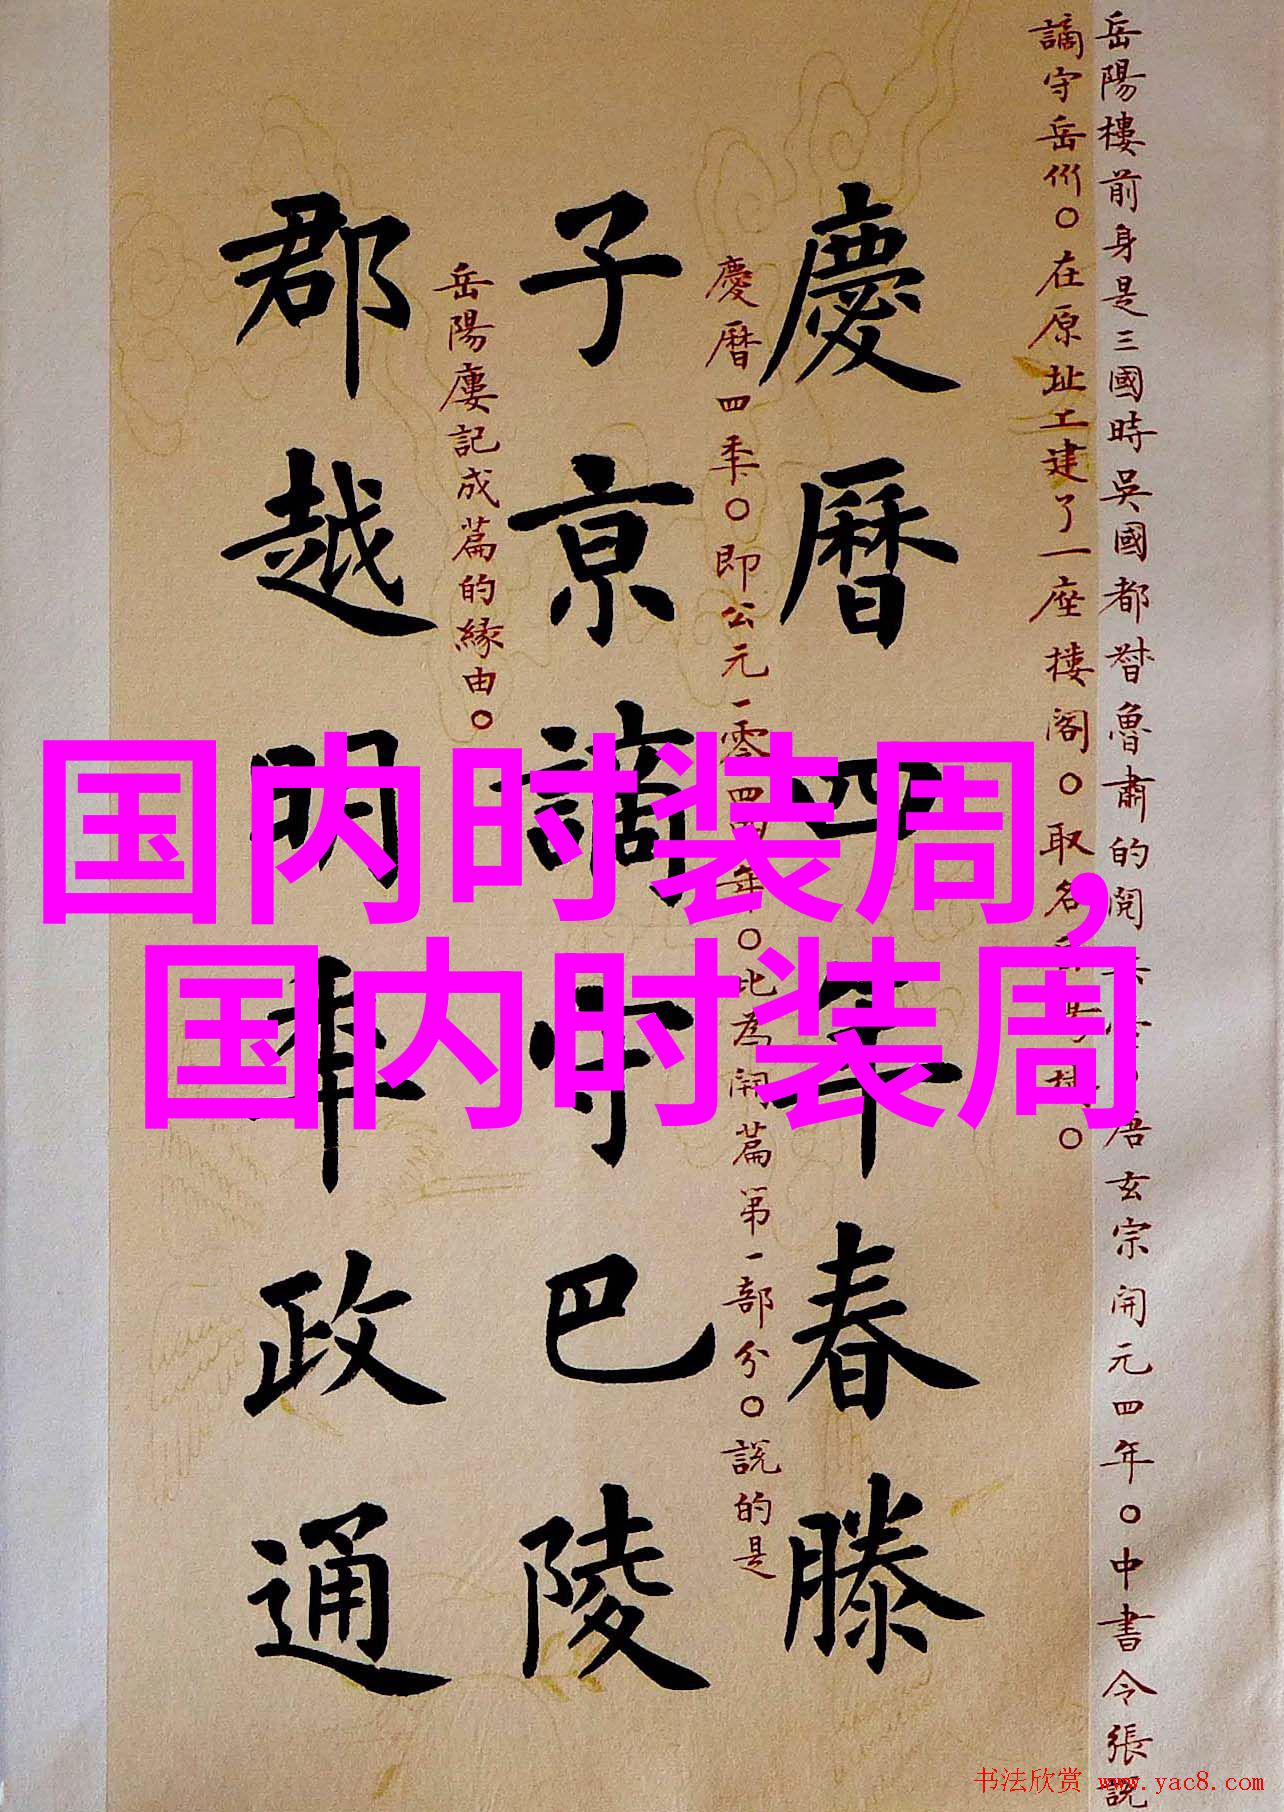 国内时装周,
国内时装周
岳陽樓前身是三國時吳國都督魯肅的閱唐玄宗開元四年○中書令張說
謫守岳州○在原址工建了一座樓阁○取名樓○
慶曆四年春滕
慶曆四年○即公元一零四四年○此為開篇第一部分○說的是
子京謫守巴陵
岳陽樓記成篇的緣由○
郡越明年政通
书法欣赏 www.yac8.com